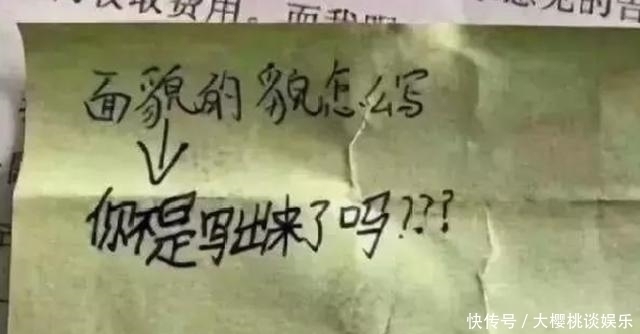 收取费用。而我
意见的
面貌的貌怎么写
你不是写出来了吗???
快传号/大樱桃谈娱乐